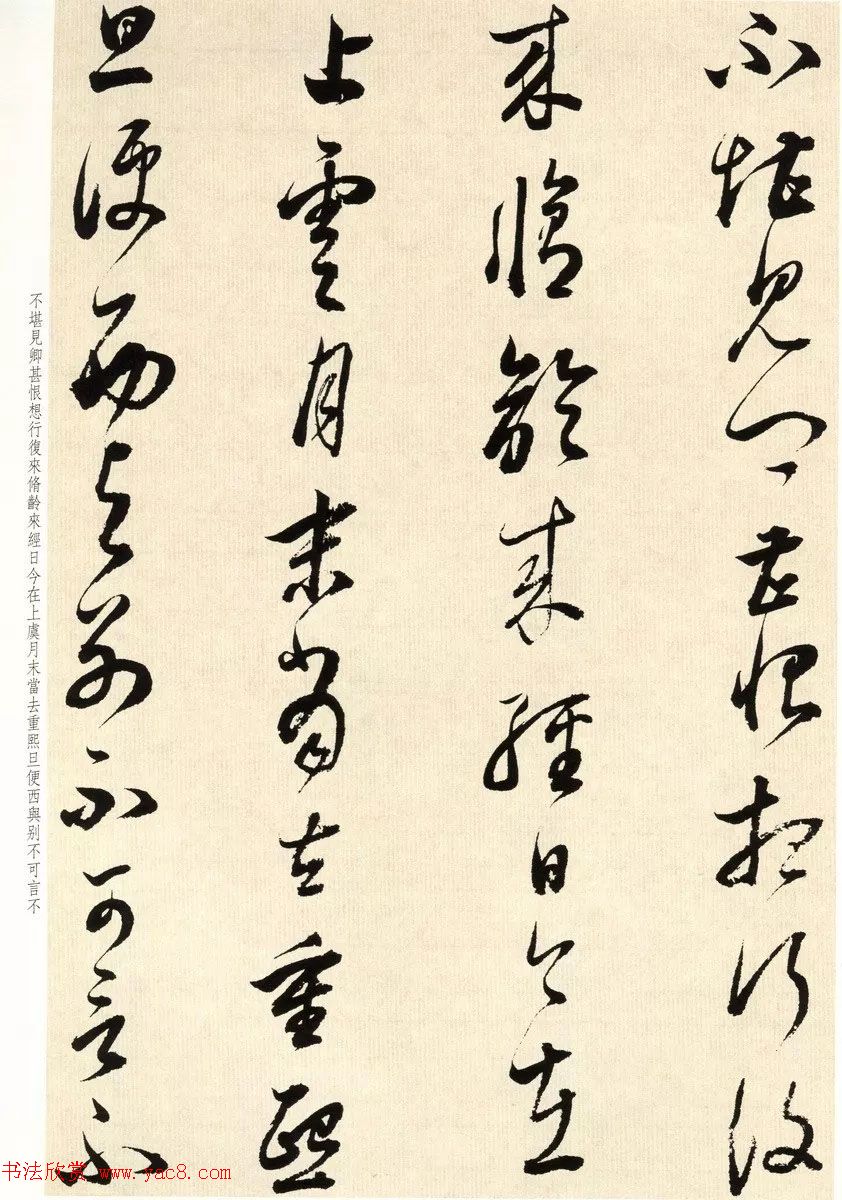 不堪見卿甚恨想行復
來脩齡來經日今在
上虞月末當去重熙
旦便西與别不可言不
不堪見卿甚恨想行復來脩齡來經日今在上虞月末當去重熙旦便西與别不可言不
书法欣赏 www.yac8.com